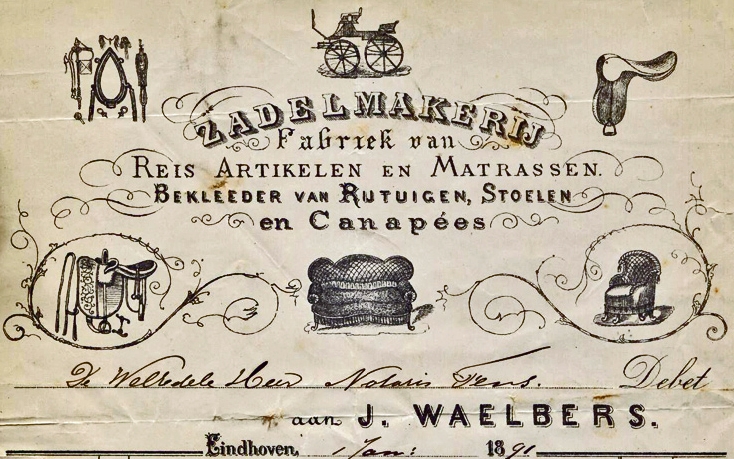 ZADELMAKERIJ
Fabriek van
REIS ARTIKELEN EN MATRASSEN.
BEKLEEDER VAN RIJTUIGEN, STOELEN
en Canapées
De Weledele Heer Notaris Fens. Debet
aan J. WAELBERS.
Eindhoven, 1 Jan: 1891